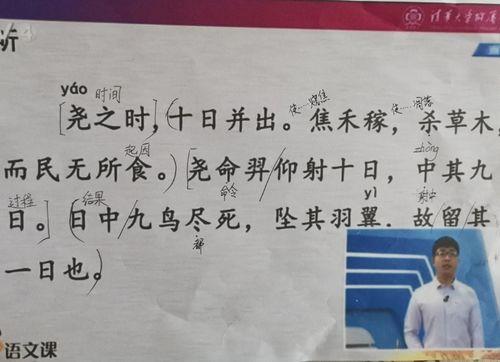 清华大学附属
听
yáo
时间
使…烧焦
使…凋落
[尧之时],(十日并出。焦禾稼,杀草木
起因
zhòng
而民无所食。)[尧命羿/仰射十日,中其九
过程
结果
命令
yì
射中
日。](日中/九乌尽死,坠其羽翼.故/留/其
都
一日也。
语文课